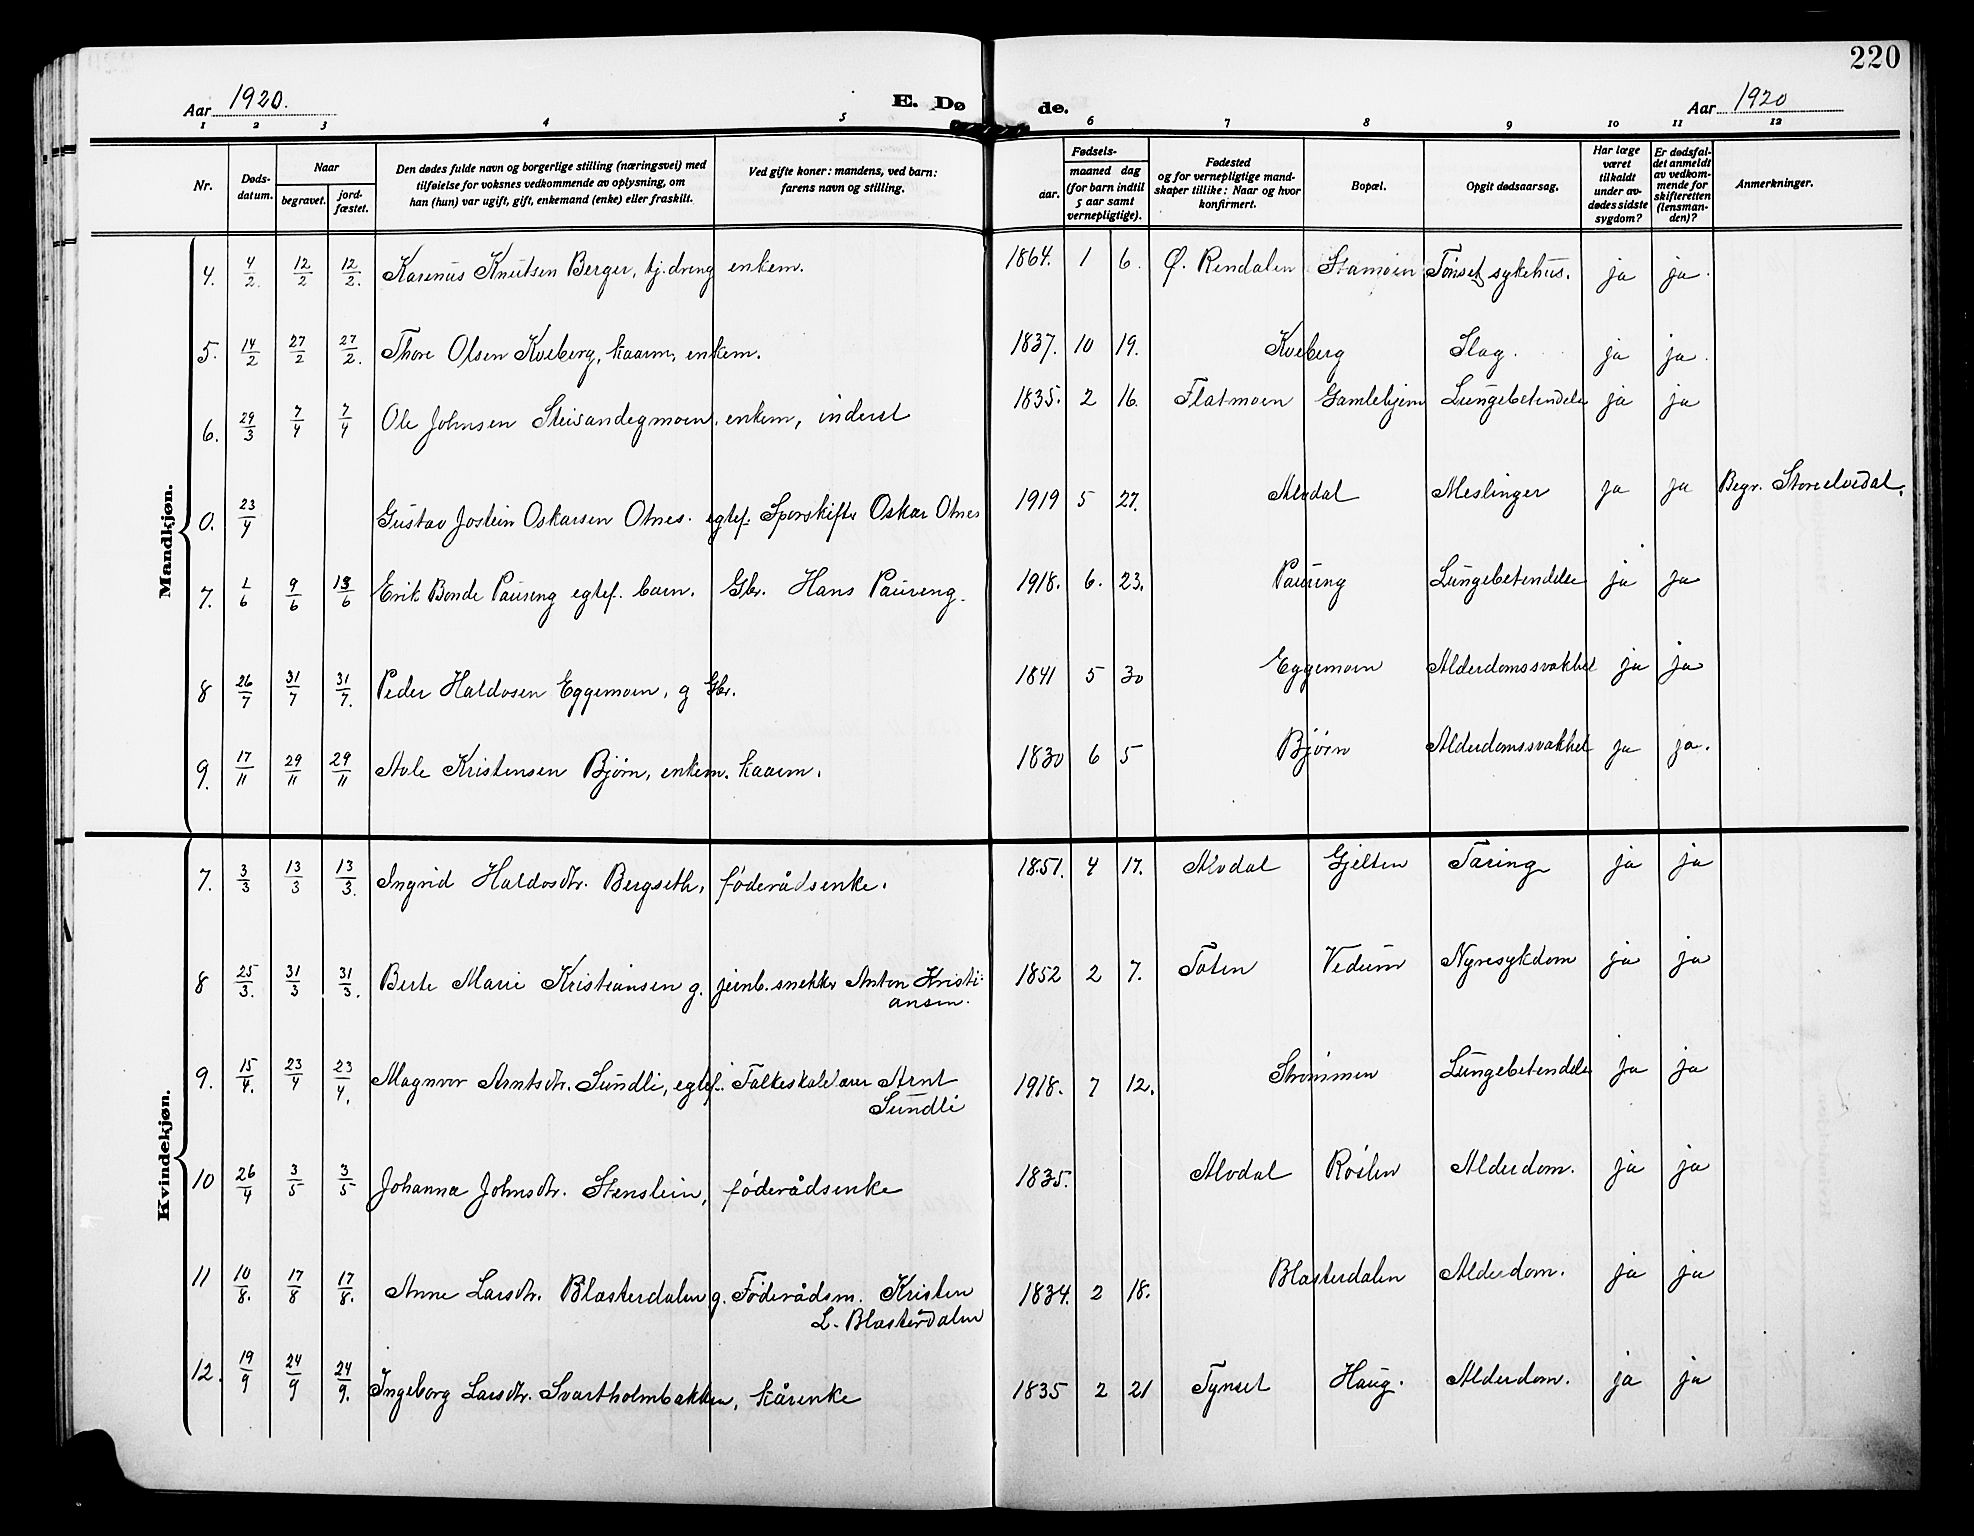 220
Aar 1920. E. Dø de. Aar 1920
1 2 3 4 5 6 7 8 9 10 11 12
Nr. Døds-datum. Naar begravet. jord-fæstet. Den dødes fulde navn og borgerlige stilling (næringsvei) med tilføielse for voksnes vedkommende av oplysning, om han (hun) var ugift, gift, enkemand (enke) eller fraskilt. Ved gifte koner: mandens, ved barn: farens navn og stilling. Fødsels- aar. maaned dag (for barn indtil 5 aar samt vernepligtige). Fødested og for vernepligtige mand-skaper tillike: Naar og hvor konfirmert. Bopæl. Opgit dødsaarsag. Har læge været tilkaldt under av-dødes sidste sygdom? Er dødsfal-det anmeldt av vedkom-mende for skifteretten (lensman-den)? Anmerkninger.
Mandkjøn.
4. 4/2. 12/2 12/2. Karenus Knutsen Berger, tj.dreng enkem. 1864. 1 6. Ø. Rendalen Stamoen Tønset sykehus. ja ja.
5. 14/2 27/2 27/2. Thore Olsen Kveberg, kaarm, enkem. 1837. 10 19. Kveberg Slag. ja ja.
6. 29/3 7/4 7/4 Ole Johnsen Steisandegmoen, enkem, inderst 1835. 2 16. Flatmoen Gamlehjem Lungebetendelse ja ja
0. 23/4 Gustav Jostein Oskarsen Otnes. egtef. Sporskifter Oskar Otnes 1919 5 27. Alvdal Meslinger ja ja Begr. Storeelvedal.
7. 1/6 9/6 13/6 Erik Bonde Paureng egtef. barn. Gbr. Hans Paureng. 1918. 6. 23. Paureng Lungebetendelse ja ja
8 26/7 31/7 31/7. Peder Haldosen Eggemoen, g Gbr. 1841 5 30 Eggemoen Alderdomssvakhet ja ja
9. 17/11 29/11 29/11 Avle Kristensen Bjørn, enkem. kaarm. 1830 6 5 Bjørn Alderdomssvakhet ja ja.
Kvindekjøn.
7. 3/3 13/3 13/3. Ingrid Haldosdtr. Bergseth, føderådsenke. 1851. 4 17. Alvdal Gjelten Tæring ja ja
8 25/3. 31/3 31/3. Berte Marie Kristiansen g. jernb.snekker Anton Kristi-
ansen. 1852 2 7. Toten Vedum Nyresykdom ja ja
9. 15/4. 23/4 23/4. Magnvor Arntsdtr. Sundli, egtef. Falkeskaldærer Arnt
Sundli 1918. 7 12. Strømmen Lungebetendelse ja ja
10 26/4 3/5 3/5 Johanna Johnsdtr. Stenstein, føderådsenke 1835. Alvdal Røsten Alderdom. ja ja
11 10/8. 17/8 17/8. Anne Larsdtr. Blæsterdalen g. Føderådsm. Kristen
L. Blæsterdalen 1834. 2 18. Blæsterdalen Alderdom. ja ja
12. 19/9 24/9 24/9. Ingeborg Larsdtr. Svartholmbakken, kårenke 1835 2 21 Tynset Haug. Alderdom. ja ja